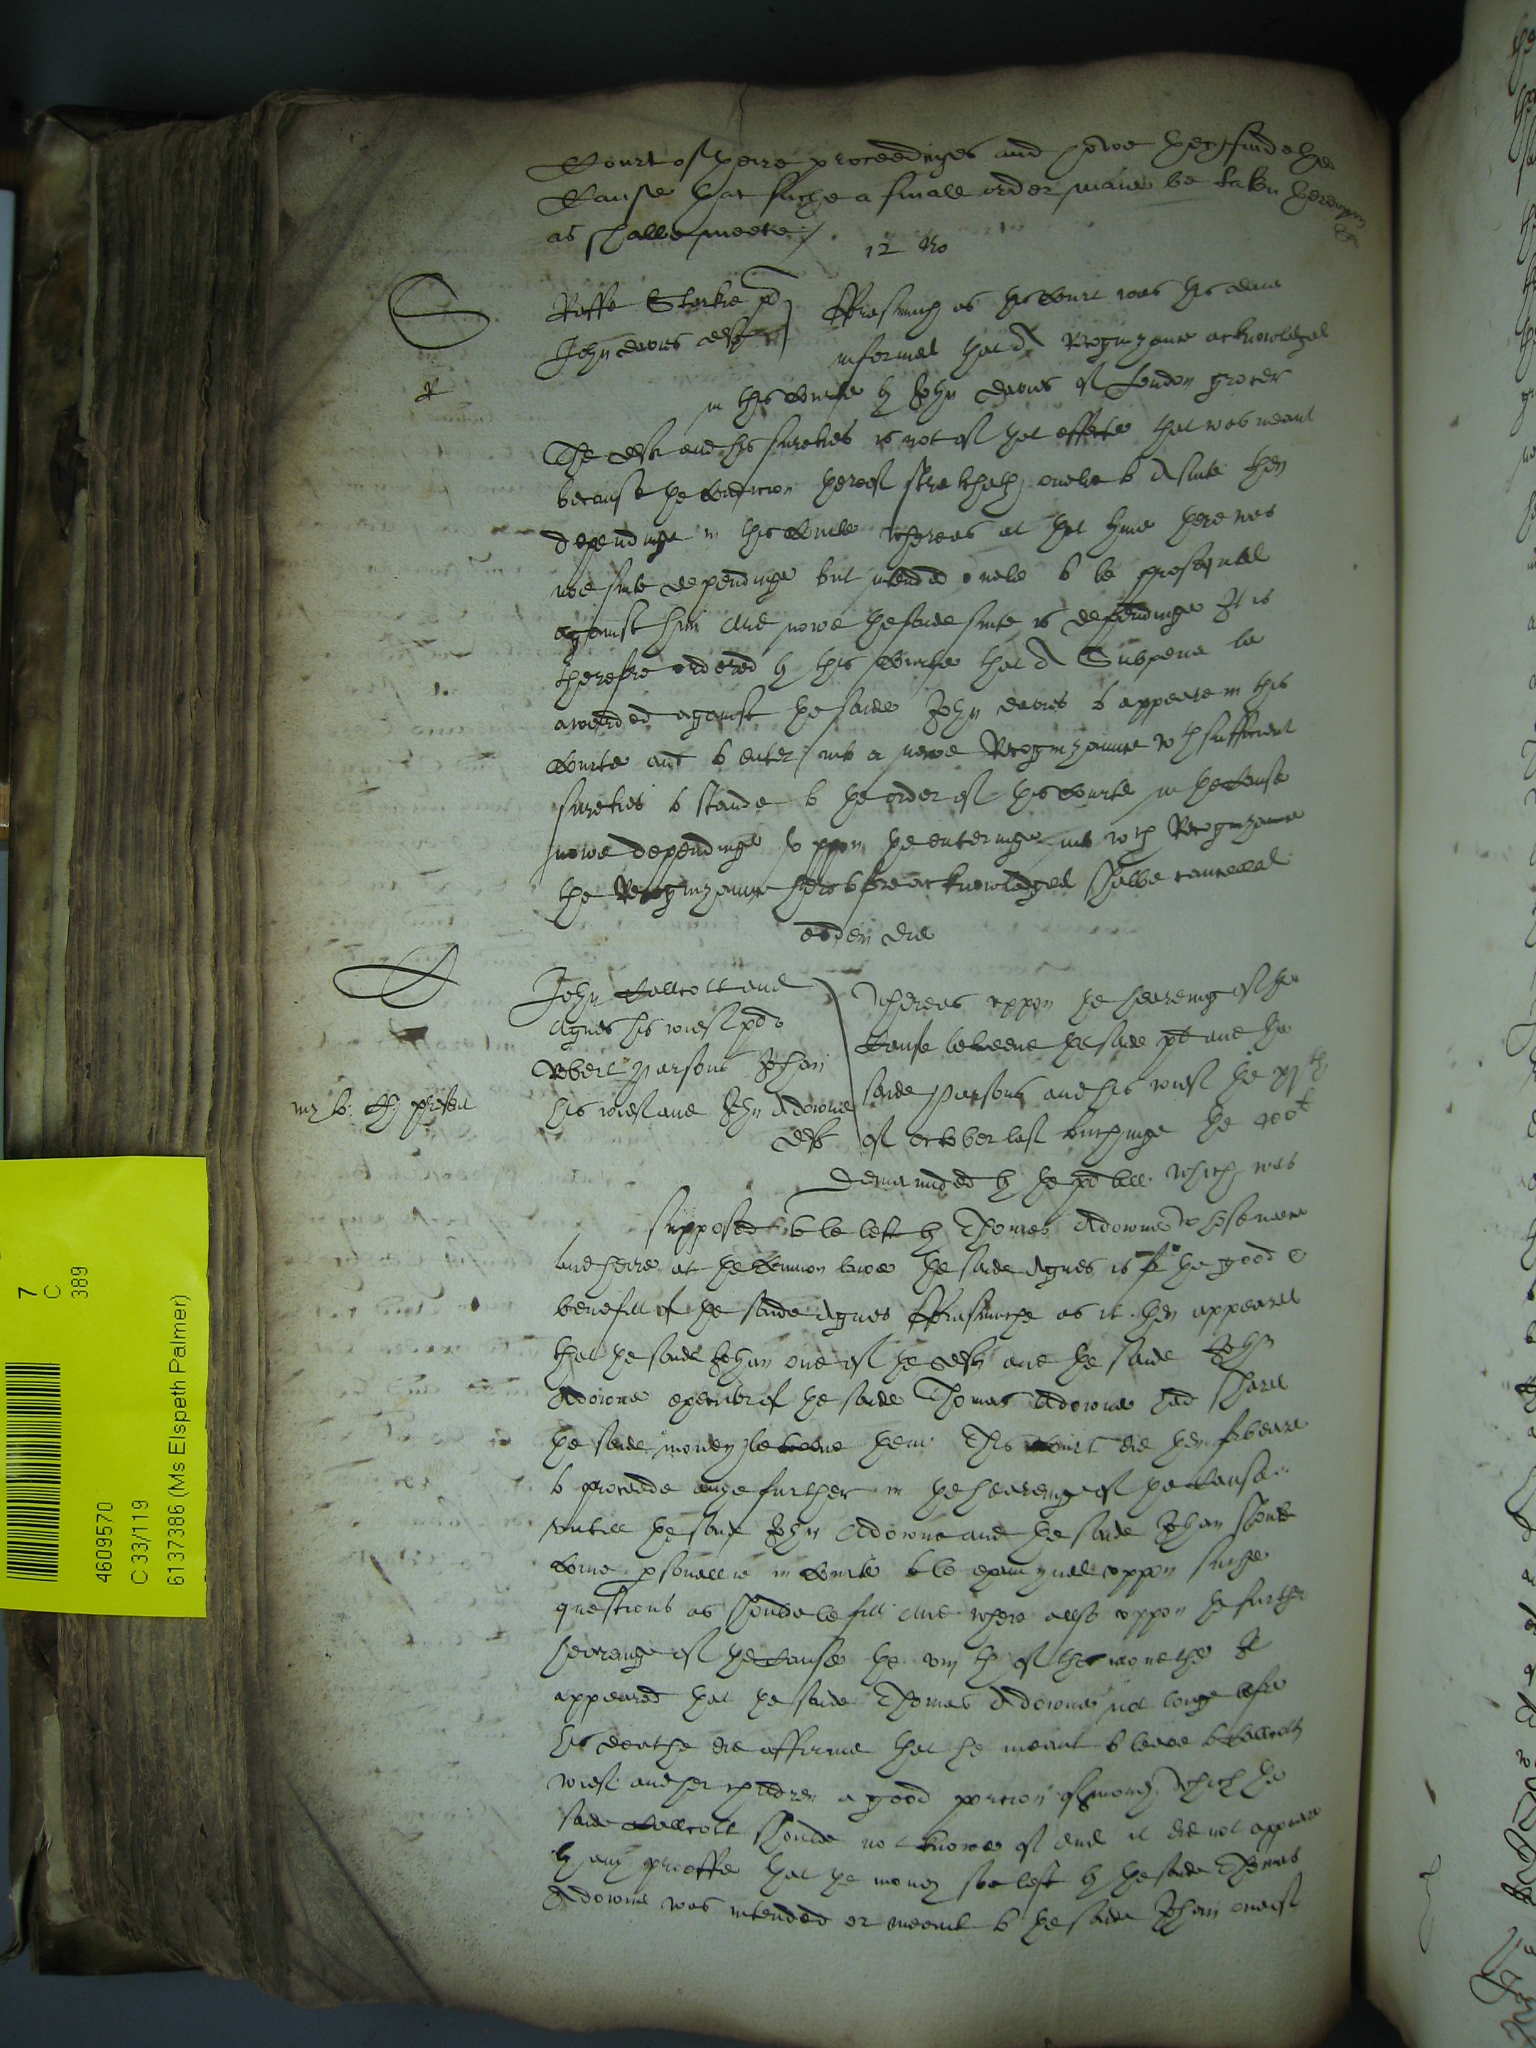 Court of theire proceedinges and howe they finde the
Cause that suche a finall order maie be taken thereupon
as shalbe meete /
12 No
Raffe Starkie pl
John Davies deft
Forasmuch as this Court was this daie
informed that A Recognizaunce acknowledged
R
in this Courte by John Davies of London grocer
The deft and his sureties is not of that effecte that was meant
because the Condicion thereof stretcheth onelie to A suite then
dependinge in this Courte whereas at that tyme there was
noe suite dependinge but intended onelie to be prosequuted
against him And nowe the saide suite is dependinge It is
therefore ordered by this Courte that A Subpena be
awarded against the saide John Davies to appeare in this
Courte and to enter into a newe Recognizaunce wth sufficient
sureties to stande to the order of this Courte in the Cause
nowe dependinge uppon the enteringe into wch Recognizaunce
the Recognizaunce heretofore acknowledged shalbe cancelled
eodem die
John Callcott and
Agnes his wief pl
Robert Parsons Johan
his wief and John Adowne
deft
Whereas uppon the heareing of the
Cause betweene the saide pl and the
saide Parsons and his wief the
of October last touchinge the
demaunded by the pl bill which was
supposed to be left by Thomas Adowne whose
and heire at the Common lawe the saide Agnes is for the good &
benefitt of the saide Agnes Forasmuche as it then appeared
that the saide Johan one of the defts and the saide John
Adowne executor of the saide Thomas Adowne had shared
the saide money betweene them This Court did then forbeare
to proceede anye further in the hearenge of the Cause
untill the saide John Adowne and the saide Johan should
Come personallie in Courte to be examyned uppon suche
questions as shoulde be fitt And where allso uppon the further
hearenge of the Cause the viijth of this monethe It
appeared that the saide Thomas Adowne not longe before
his deathe did affirme that he meant to leave to Callcotts
wief and her children a good porcion of money which the
saide Callcott shoulde not knowe of And it did not appeare
by any prooffe that the money soe left by the saide Thomas
Adowne was intended or meant to the saide Johan
7
C
389
4609570
C 33/119
6137386 (Ms Elspeth Palmer)